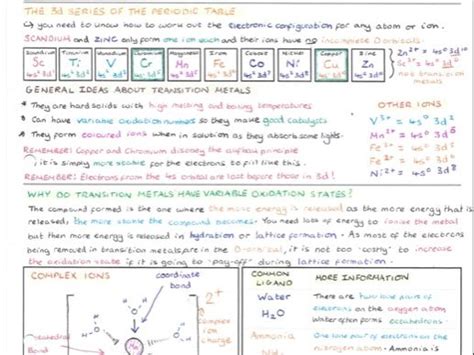 THE 3d SERIES OF THE PERIODIC TABLE
you need to know how to work out the electronic configuration for any atom or ion.
SCANDIUM and ZINC only form one ion each and their ions have no incomplete D orbitals
Scandium Titanium Vanadium Chromium Manganese Iron Cobalt Nickel Copper Zinc
Sc Ti V Cr Mn Fe Co Ni Cu Zn
Zn2+ = 4s0 3d10
not transition metals
GENERAL IDEAS ABOUT TRANSITION METALS
They are hard solids with high melting and boiling temperatures
OTHER IONS
Can have variable oxidation numbers so they make good catalysts
They form coloured ions when in solution as they absorb some light.
REMEMBER: Copper and Chromium disobey the aufbau principle
it is simply more stable for the electrons to fill like this.
REMEMBER: Electrons from the 4s orbital are lost before those in 3d!
V3+ = 4s0 3d2
Mn2+ = 4s0 3d5
Fe3+ = 4s0 3d5
Fe2+ = 4s0 3d6
Ni2+ = 4s0 3d8
WHY DO TRANSITION METALS HAVE VARIABLE OXIDATION STATES?
The compound formed is the one where the more energy is released as the more energy that is
released, the more stable the compound becomes. You need loss of energy to ionise the metal
but then more energy is released in hydration or lattice formation. As most of the electrons
being removed in transition metals are in the D-orbital, it is not too "costly" to increase
the oxidation state if it is going to "pay-off" during lattice formation.
COMPLEX IONS
coordinate
bond
2+
complex
ion
charge
Mn
bond
COMMON
LIGAND
MORE INFORMATION
Water
H2O
There are two lone pairs of
electrons on the oxygen atom
Water often forms octahedrons
Ammonia
One lone pair of electron on
the nitrogen atom
Ammonia is